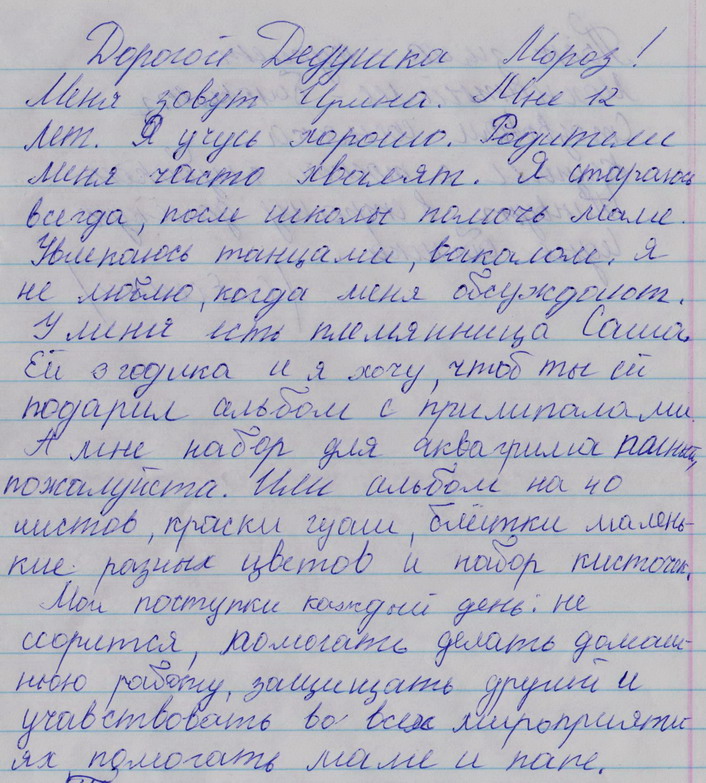 Дорогой Дедушка Мороз!
Меня зовут Ирина. Мне 12
лет. Я учусь хорошо. Родители
меня часто хвалят. Я стараюсь
всегда, после школы помочь маме.
Увлекаюсь танцами, вакалом. Я
не люблю, когда меня обсуждают.
У меня есть племянница Саша.
Ей 3 годика и я хочу, чтоб ты ей
подарил альбом с прилипалами.
А мне набор для аквагрима полный,
пожалуйста. Или альбом на 40
листов, краски гуаши, блёстки малень-
кие разных цветов и набор кисточек.
Мои поступки каждый день: не
ссорится, помогать делать домаш-
нюю работу, защищать друзей и
учавствовать во всех мироприяти-
ях помогать маме и папе.